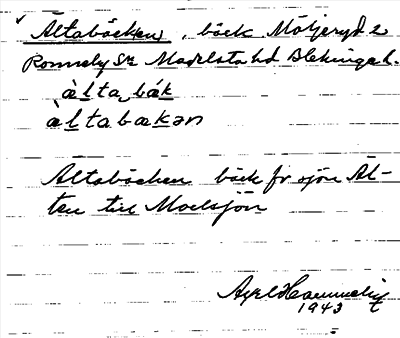 Ältabäcken, bäck Möljeryd 2
Ronneby Sn Medelsta hd Blekinge l.
àlta bák
àltabakən
Ältabäcken bäck fr sjön Äl-
ten till Moelsjön
Axel
1943